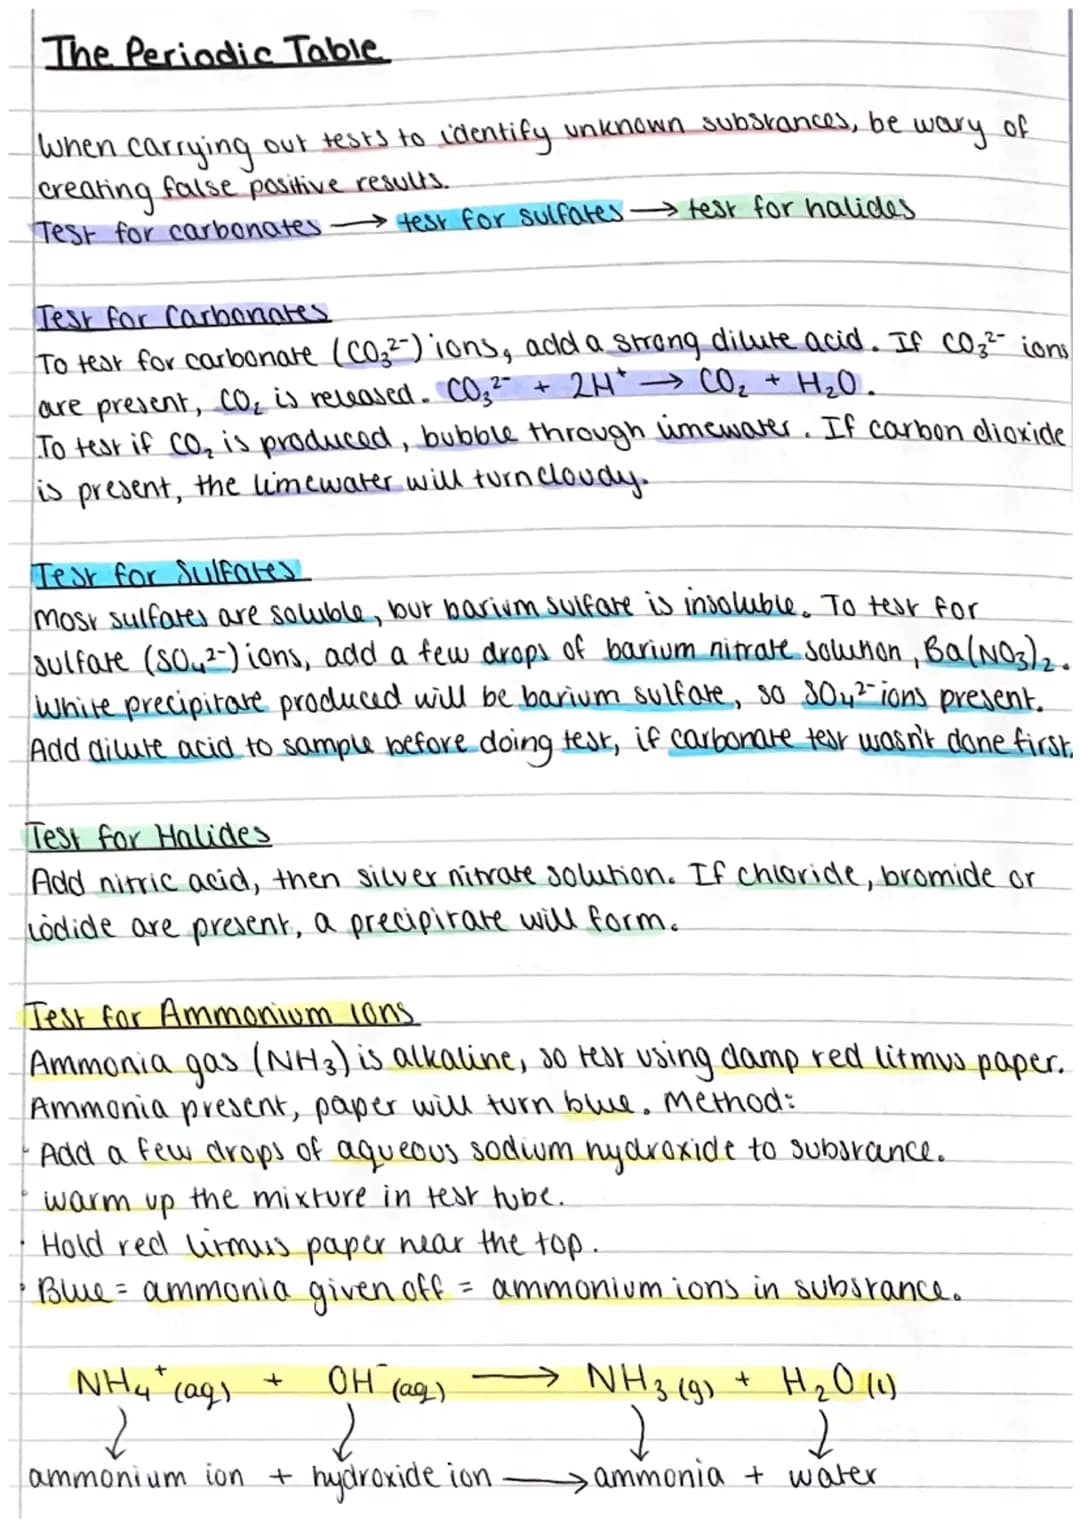 The Periodic Table
When carrying out tests to identify unknown substances, be wary of
creating false positive results.
Test for carbonates → test for sulfates → test for halides
Test for Carbonates
To test for carbonate (CO₃²⁻) ions, add a strong dilute acid. If CO₃²⁻ ions
are present, CO₂ is released. CO₃²⁻ + 2H⁺ → CO₂ + H₂O.
To test if CO₂ is produced, bubble through limewater. If carbon dioxide
is present, the limewater will turn cloudy.
Test for Sulfates
Most sulfates are soluble, but barium sulfate is insoluble. To test for
sulfate (SO₄²⁻) ions, add a few drops of barium nitrate solution, Ba(NO₃)₂.
White precipitate produced will be barium sulfate, so SO₄²⁻ ions present.
Add dilute acid to sample before doing test, if carbonate test wasn't done first.
Test for Halides
Add nitric acid, then silver nitrate solution. If chloride, bromide or
iodide are present, a precipitate will form.
Test for Ammonium Ions
Ammonia gas (NH₃) is alkaline, so test using damp red litmus paper.
Ammonia present, paper will turn blue. Method:
· Add a few drops of aqueous sodium hydroxide to substance.
· warm up the mixture in test tube.
· Hold red litmus paper near the top.
· Blue = ammonia given off = ammonium ions in substance.
NH₄⁺(aq) + OH⁻(aq) → NH₃(g) + H₂O(l)
ammonium ion + hydroxide ion → ammonia + water